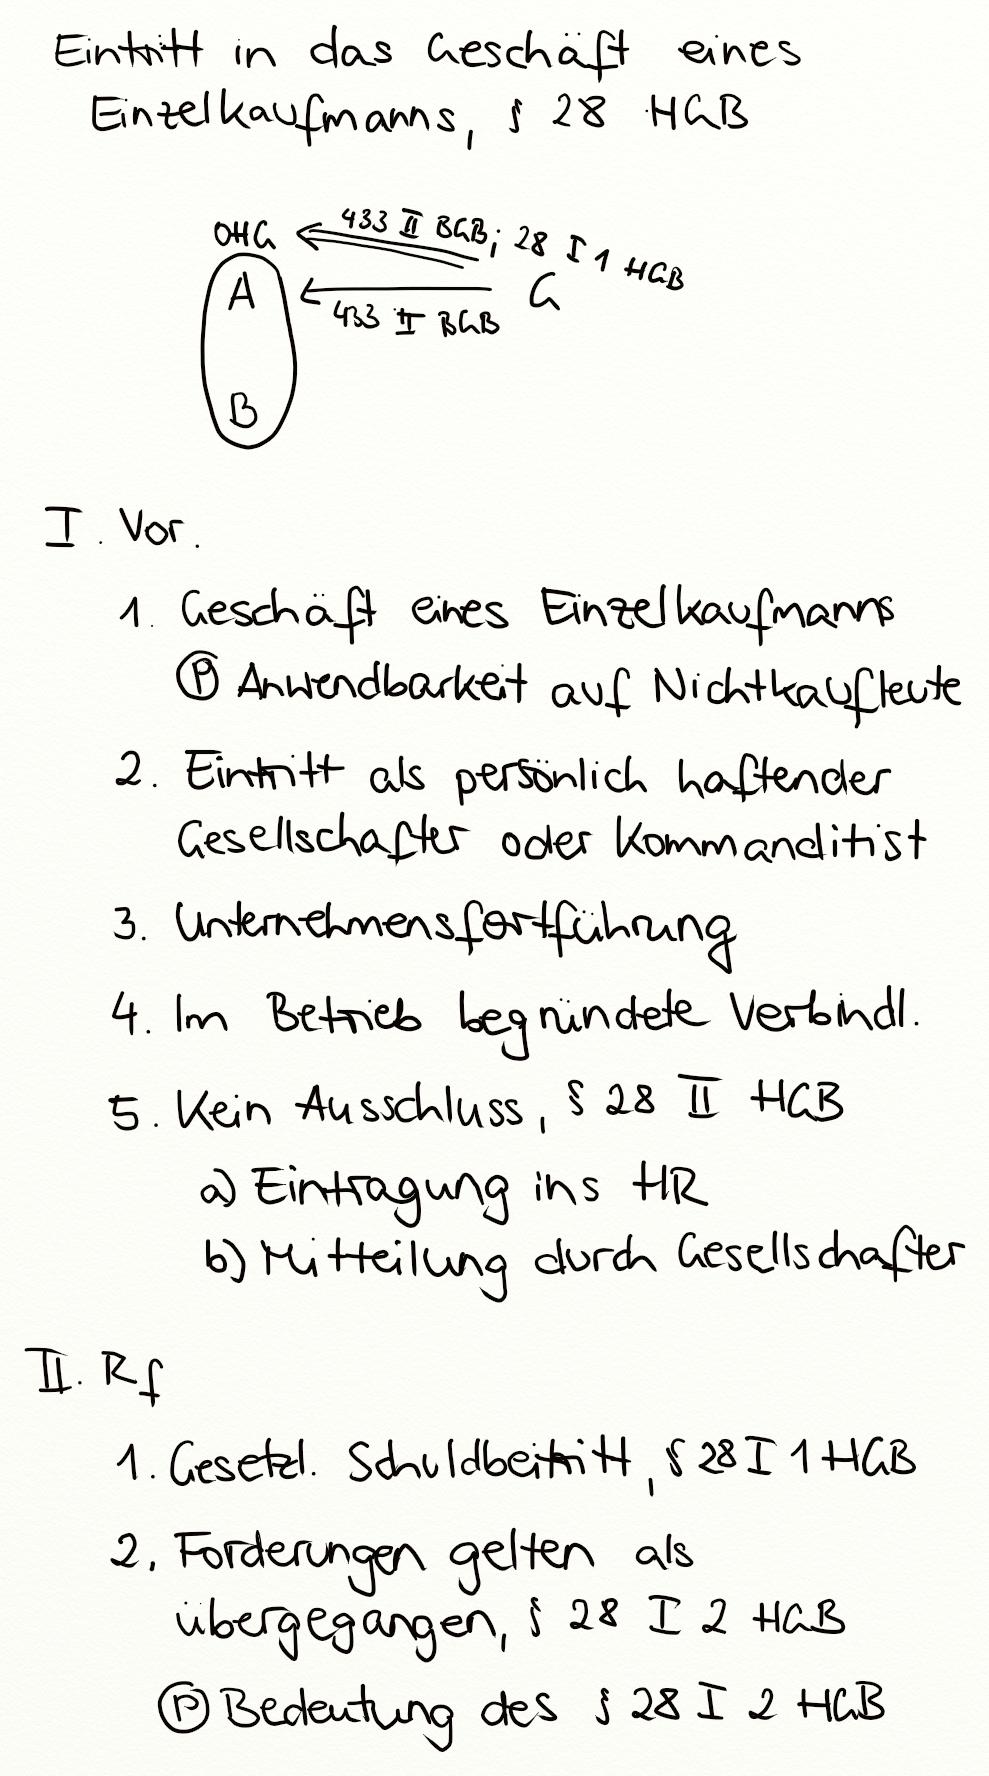 Eintritt in das Geschäft eines
Einzelkaufmanns, § 28 HGB
OHG
433 II BGB; 28 I 1 HGB
A
G
433 II BGB
B
I. Vor.
1. Geschäft eines Einzelkaufmanns
Ⓟ Anwendbarkeit auf Nichtkaufleute
2. Eintritt als persönlich haftender
Gesellschafter oder Kommanditist
3. Unternehmensfortführung
4. Im Betrieb begründete Verbindl.
5. Kein Ausschluss, § 28 II HGB
a) Eintragung ins HR
b) Mitteilung durch Gesellschafter
II. Rf
1. Gesetzl. Schuldbeitritt, § 28 I 1 HGB
2. Forderungen gelten als
übergegangen, § 28 I 2 HGB
Ⓟ Bedeutung des § 28 I 2 HGB